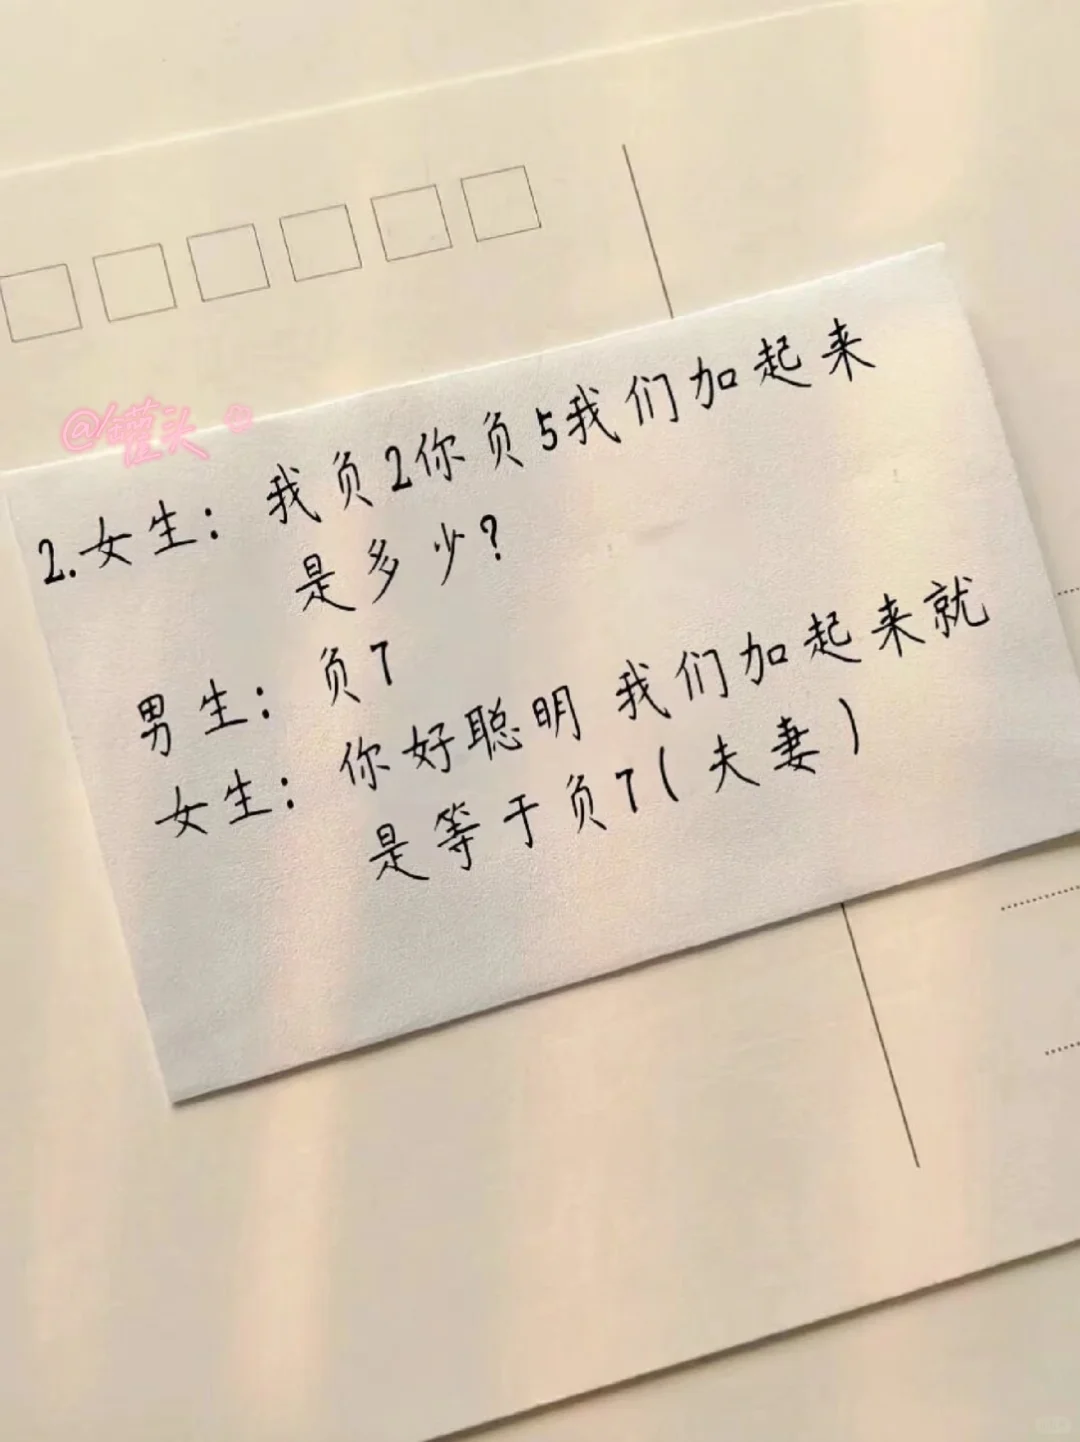 @罐头
2.女生：我负2你负5我们加起来
是多少?
男生：负7
女生：你好聪明 我们加起来就
是等于负7(夫妻)